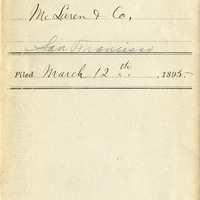 McLaren & Co,
San Francisco
Filed March 12th, 1895-